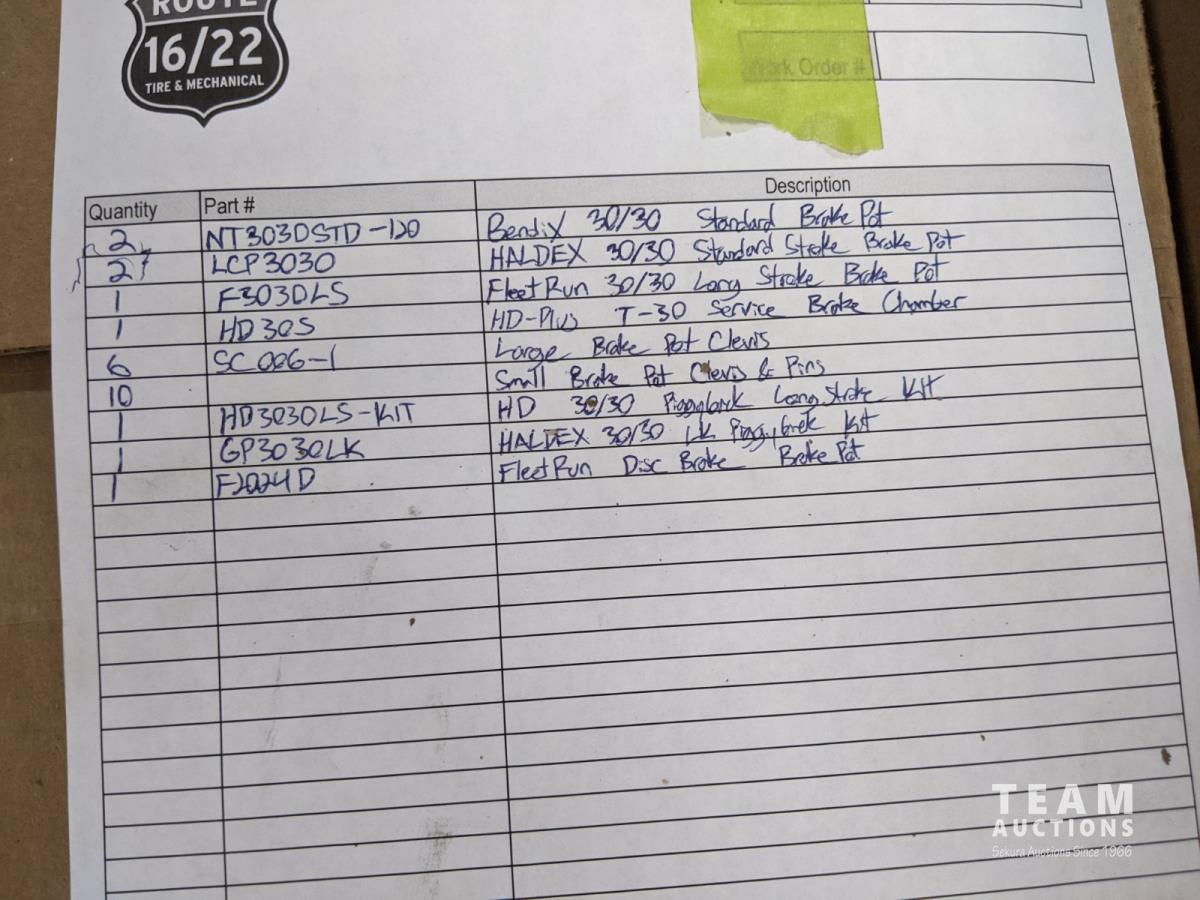 ROUTE
16/22
TIRE & MECHANICAL
Work Order #
Quantity Part # Description
2 NT3030STD-120 Bendix 30/30 Standard Brake Pot
2 LCP3030 HALDEX 30/30 Standard Stroke Brake Pot
1 F3030LS FleetRun 30/30 Long Stroke Brake Pot
1 HD30S HD-Plus T-30 Service Brake Chamber
6 SC006-1 Large Brake Pot Clevis
10 Small Brake Pot Clevis & Pins
1 HD3030LS-KIT HD 30/30 Piggyback Long Stroke Kit
1 GP3030LK HALDEX 30/30 LK Piggyback Kit
1 F2024D FleetRun Disc Brake Brake Pot
TEAM
AUCTIONS
Sekura Auctions Since 1966